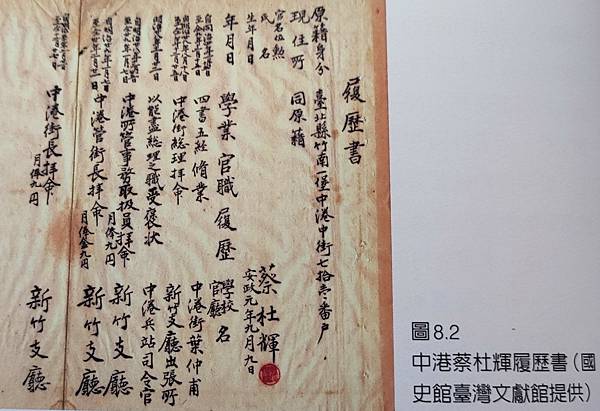 履歷書
原籍身分 臺北縣竹南一堡中港中街七拾壱番戶
現住所 同原籍
官名位勲
氏名 蔡杜輝
生年月日 安政元年九月九日
年月日 學業官職履歷 學校官廳名
四書五經脩業 中港街葉仲甫
中港街總理拜命 新竹支廳出張所
以能盡總理之職受褒状 中港兵站司令官
中港所管事務取扱員拜命 月俸九円 新竹支廳
中港管街長拜命 月俸金九円 新竹支廳
中港街長拜命 月俸九円 新竹支廳
圖8.2
中港蔡杜輝履歷書(國
史館臺灣文獻館提供)